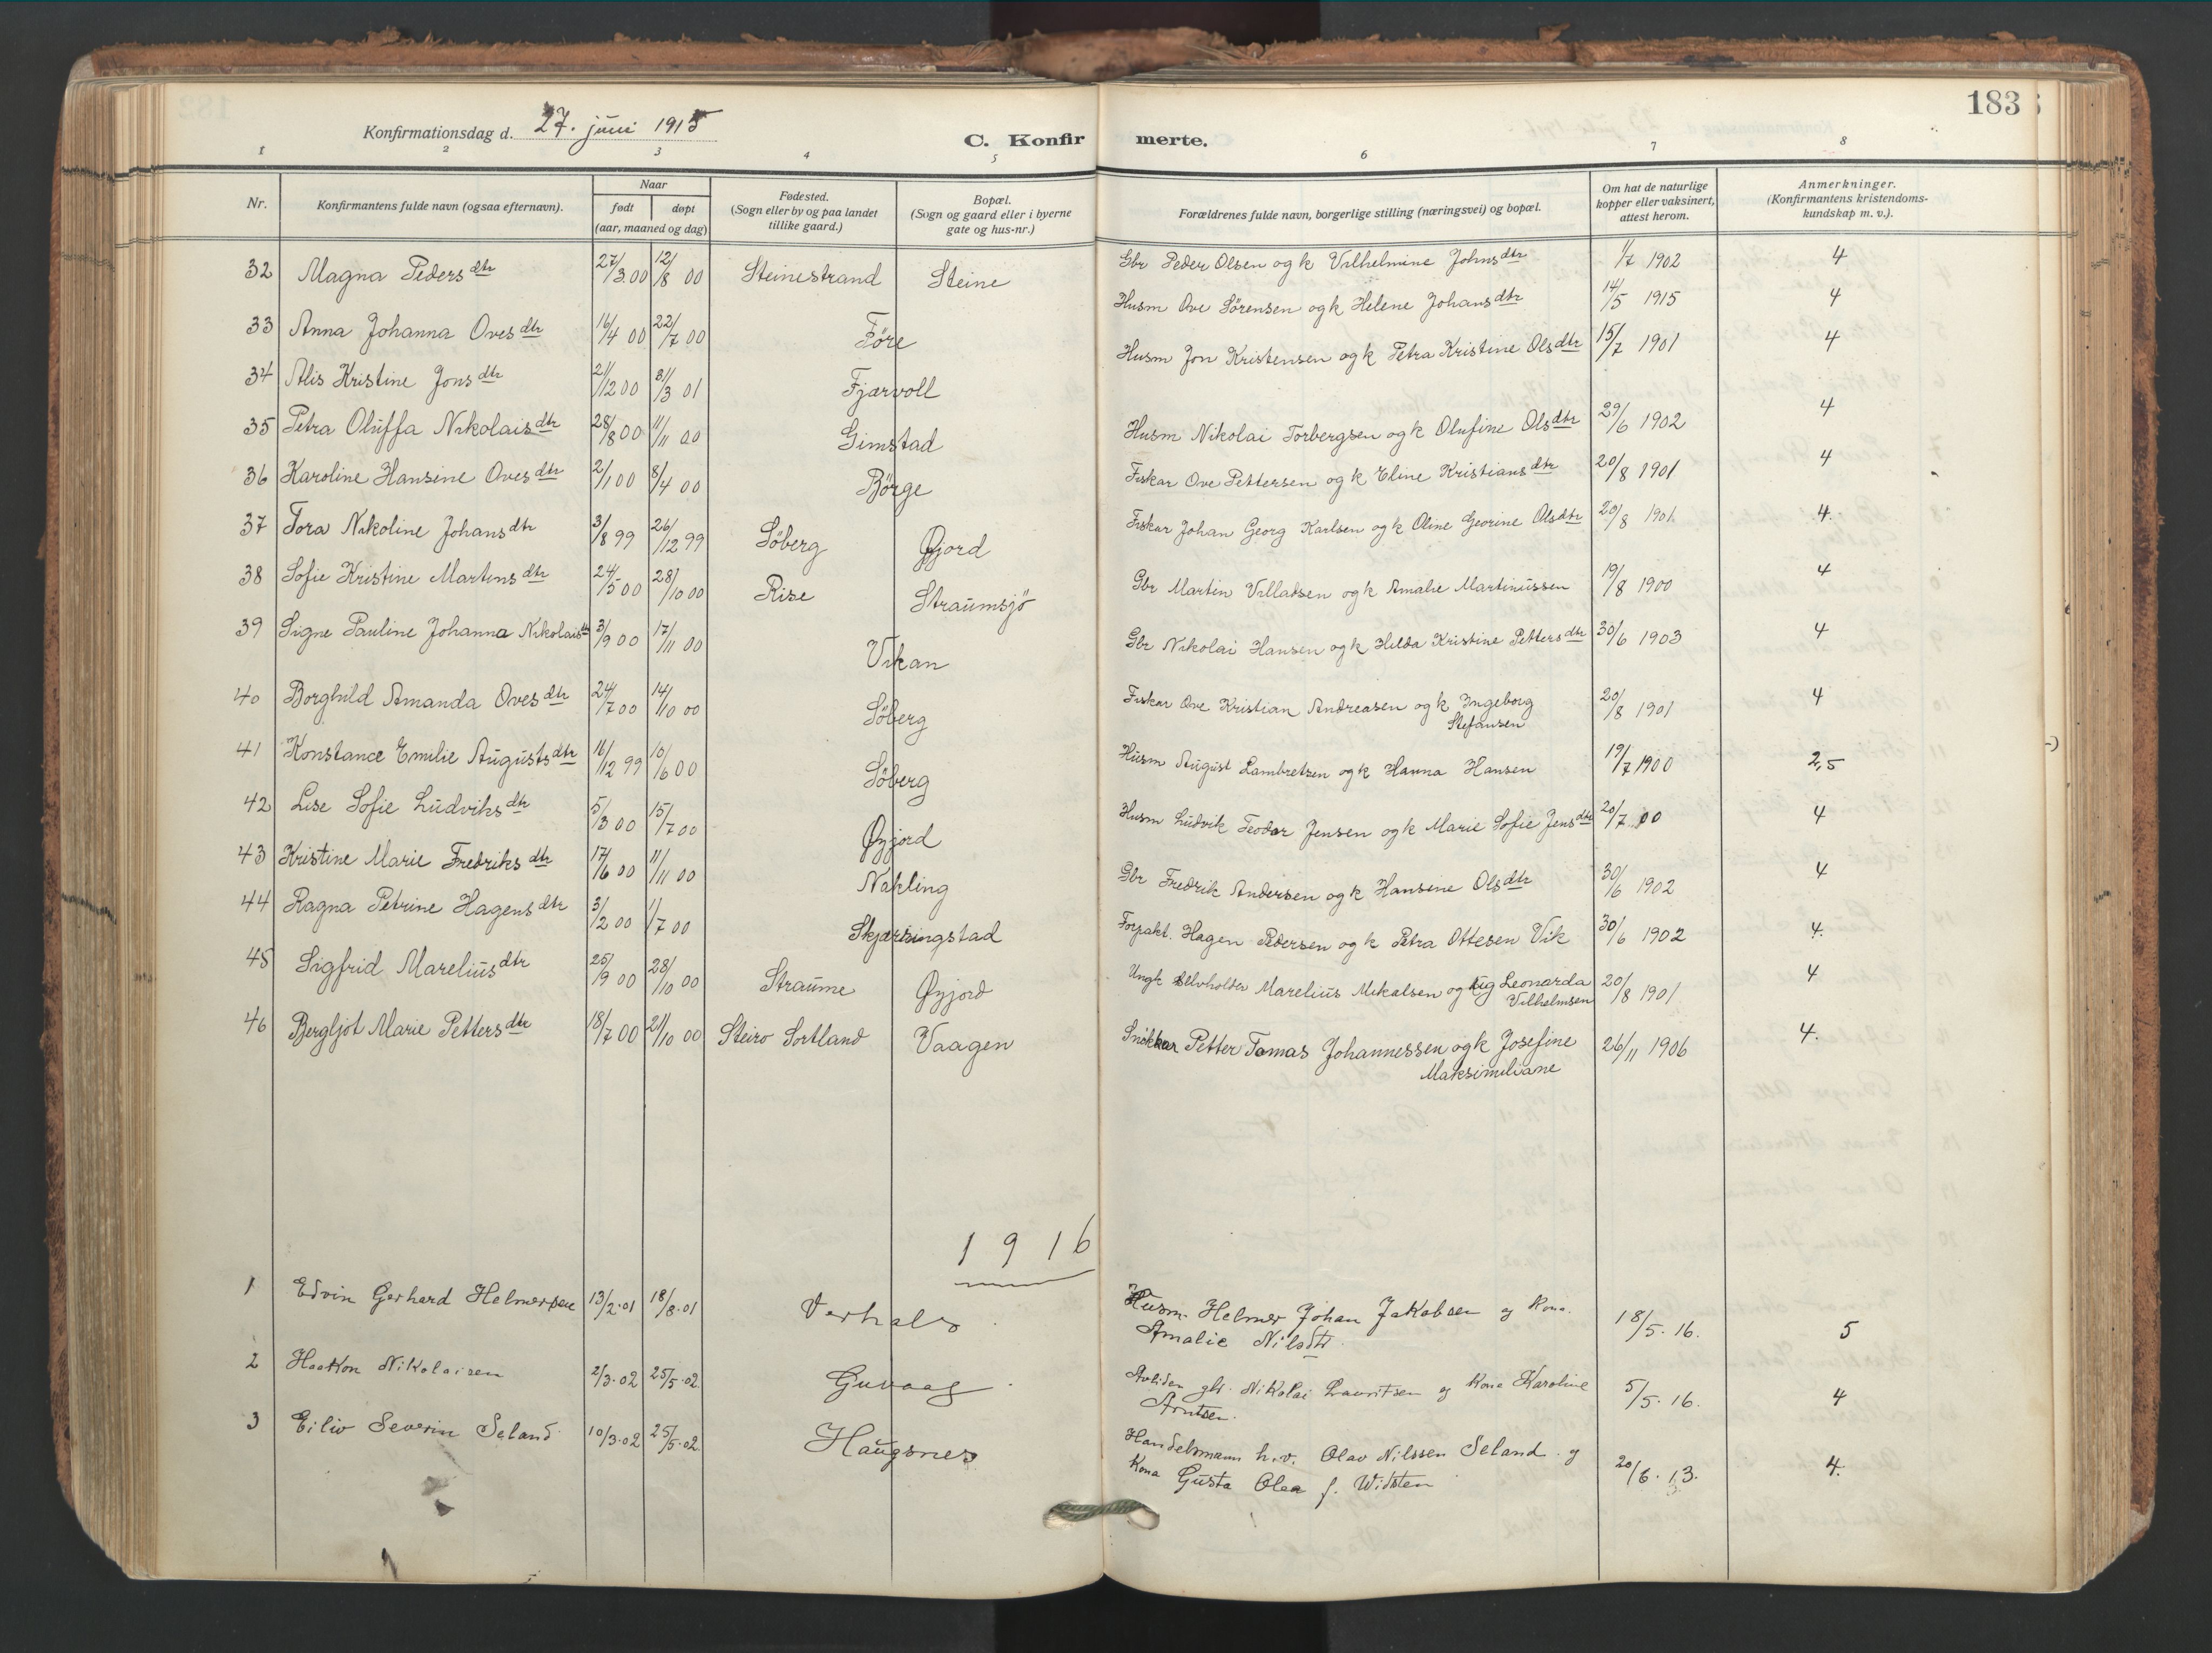 183
Konfirmationsdag d. 27. juni 1915
C. Konfirmerte.
1 2 3 4 5 6 7 8
Nr. Konfirmantens fulde navn (ogsaa efternavn). Naar født døpt (aar, maaned og dag) Fødested. (Sogn eller by og paa landet tillike gaard.) Bopæl. (Sogn og gaard eller i byerne gate og hus-nr.) Forældrenes fulde navn, borgerlige stilling (næringsvei) og bopæl. Om hat de naturlige kopper eller vaksinert, attest herom. Anmerkninger. (Konfirmantens kristendoms-kundskap m. v.).
32 Magna Pedersdtr 27/3.00 12/8 00 Steinestrand Steine Gbr Peder Olsen og k Vilhelmine Johnsdtr 1/7 1902 4
33 Anna Johanna Ovesdtr 16/4 00 22/7 00 Føre Husm Ove Sørensen og k Helene Johansdtr 14/5 1915 4
34 Alis Kristine Jonsdtr 21/12 00 8/3 01 Fjærvoll Husm Jon Kristensen og k Petra Kristine Olsdtr 15/7 1901 4
35 Petra Oluffa Nikolaisdtr 28/8 00 11/11 00 Gimstad Husm Nikolai Torbergsen og k Olufine Olsdtr 29/6 1902 4
36 Karoline Hansine Ovesdtr 2/1 00 8/4 00 Børge Fiskar Ove Pettersen og k Eline Kristiansdtr 20/8 1901 4
37 Tora Nikoline Johansdtr 3/8 99 26/12 99 Søberg Øjord Fiskar Johan Georg Karlsen og k Oline Georine Olsdtr 20/8 1901. 4.
38 Sofie Kristine Martinsdtr 24/5 00 28/10 00 Rise Straumsjö Gbr Martin Villatsen og k Amalie Martinussen 19/8 1900 4
39 Signe Pauline Johanna Nikolaisdtr 3/9 00 17/11 00 Vikan Gbr Nikolai Hansen og k Hilda Kristine Pettersdtr 30/6 1903 4
40 Borghild Amanda Ovesdtr 24/7 00 14/10 00 Søberg Fiskar Ove Kristian Andreasen og k Ingeborg Stefansen 20/8 1901 4
41 Konstance Emilie Augustsdtr 16/12 99 10/6 00 Søberg Husm August Lambretsen og k Hanna Hansen 19/7 1900 2,5
42 Lise Sofie Ludviksdtr 5/3 00 15/7 00 Øyjord Husm Ludvik Teodor Jensen og k Marie Sofie Jensdtr 20/7 00 4
43 Kristine Marie Fredriksdtr 17/6 00 11/11 00 Nakling Gbr Fredrik Andersen og k Hansine Olsdtr 30/6 1902 4
44 Ragna Petrine Hagensdtr 3/2 00 1/7 00 Skjærsingstad Forpakt. Hagen Pedersen og k Petra Ottesen Vik 30/6 1902 4.
45 Sigfrid Mareliusdtr 25/9 00 28/10 00 Straume Øyjord Ungk selvholder Marelius Mikalsen og pig Leonarda Vilhelmsen 20/8 1901 4
46 Bergljot Marie Pettersdtr 18/7 00 21/10 00 Steiro Sortland Vaagen Snekkar Petter Tomas Johannessen og k Josefine Maksimiliane 26/11 1906 4.
1916
1 Edvin Gerhard Helmersen 13/2.01 18/8.01 Verhals Husm. Helmer Johan Jakobsen og kona. Amalie Nilsdtr. 18/5.16. 5
2 Haakon Nikolaisen 2/3.02 25/5.02. Guvaag Avliden gbr. Nikolai Lauritsen og kona Karoline Arntsen. 5/5.16. 4
3 Eiliv Severin Seland 10/3.02 25/5.02 Haugsnes Handelsmann h.v. Olav Nilssen Seland og kona Gusta Olea f. Widsten 20/6.13. 4.